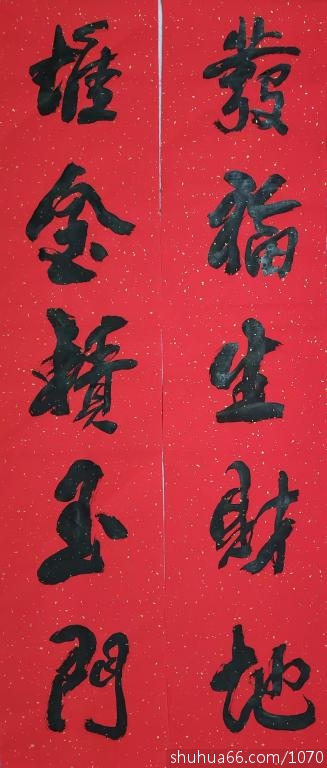 發福生財地
堆金積玉門
shuhua66.com/1070